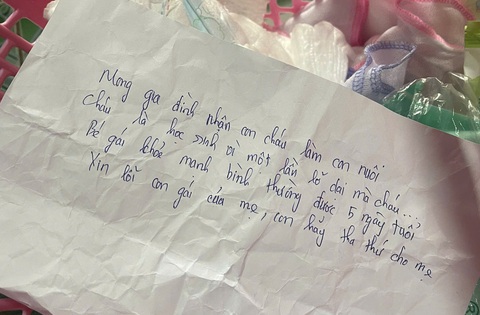 Mong gia đình nhận con cháu làm con nuôi
Cháu là học sinh vì một lần lỡ dại mà cháu...,
Bé gái khỏe mạnh bình thường được 5 ngày tuổi
Xin lỗi con gái của mẹ, con hãy tha thứ cho mẹ